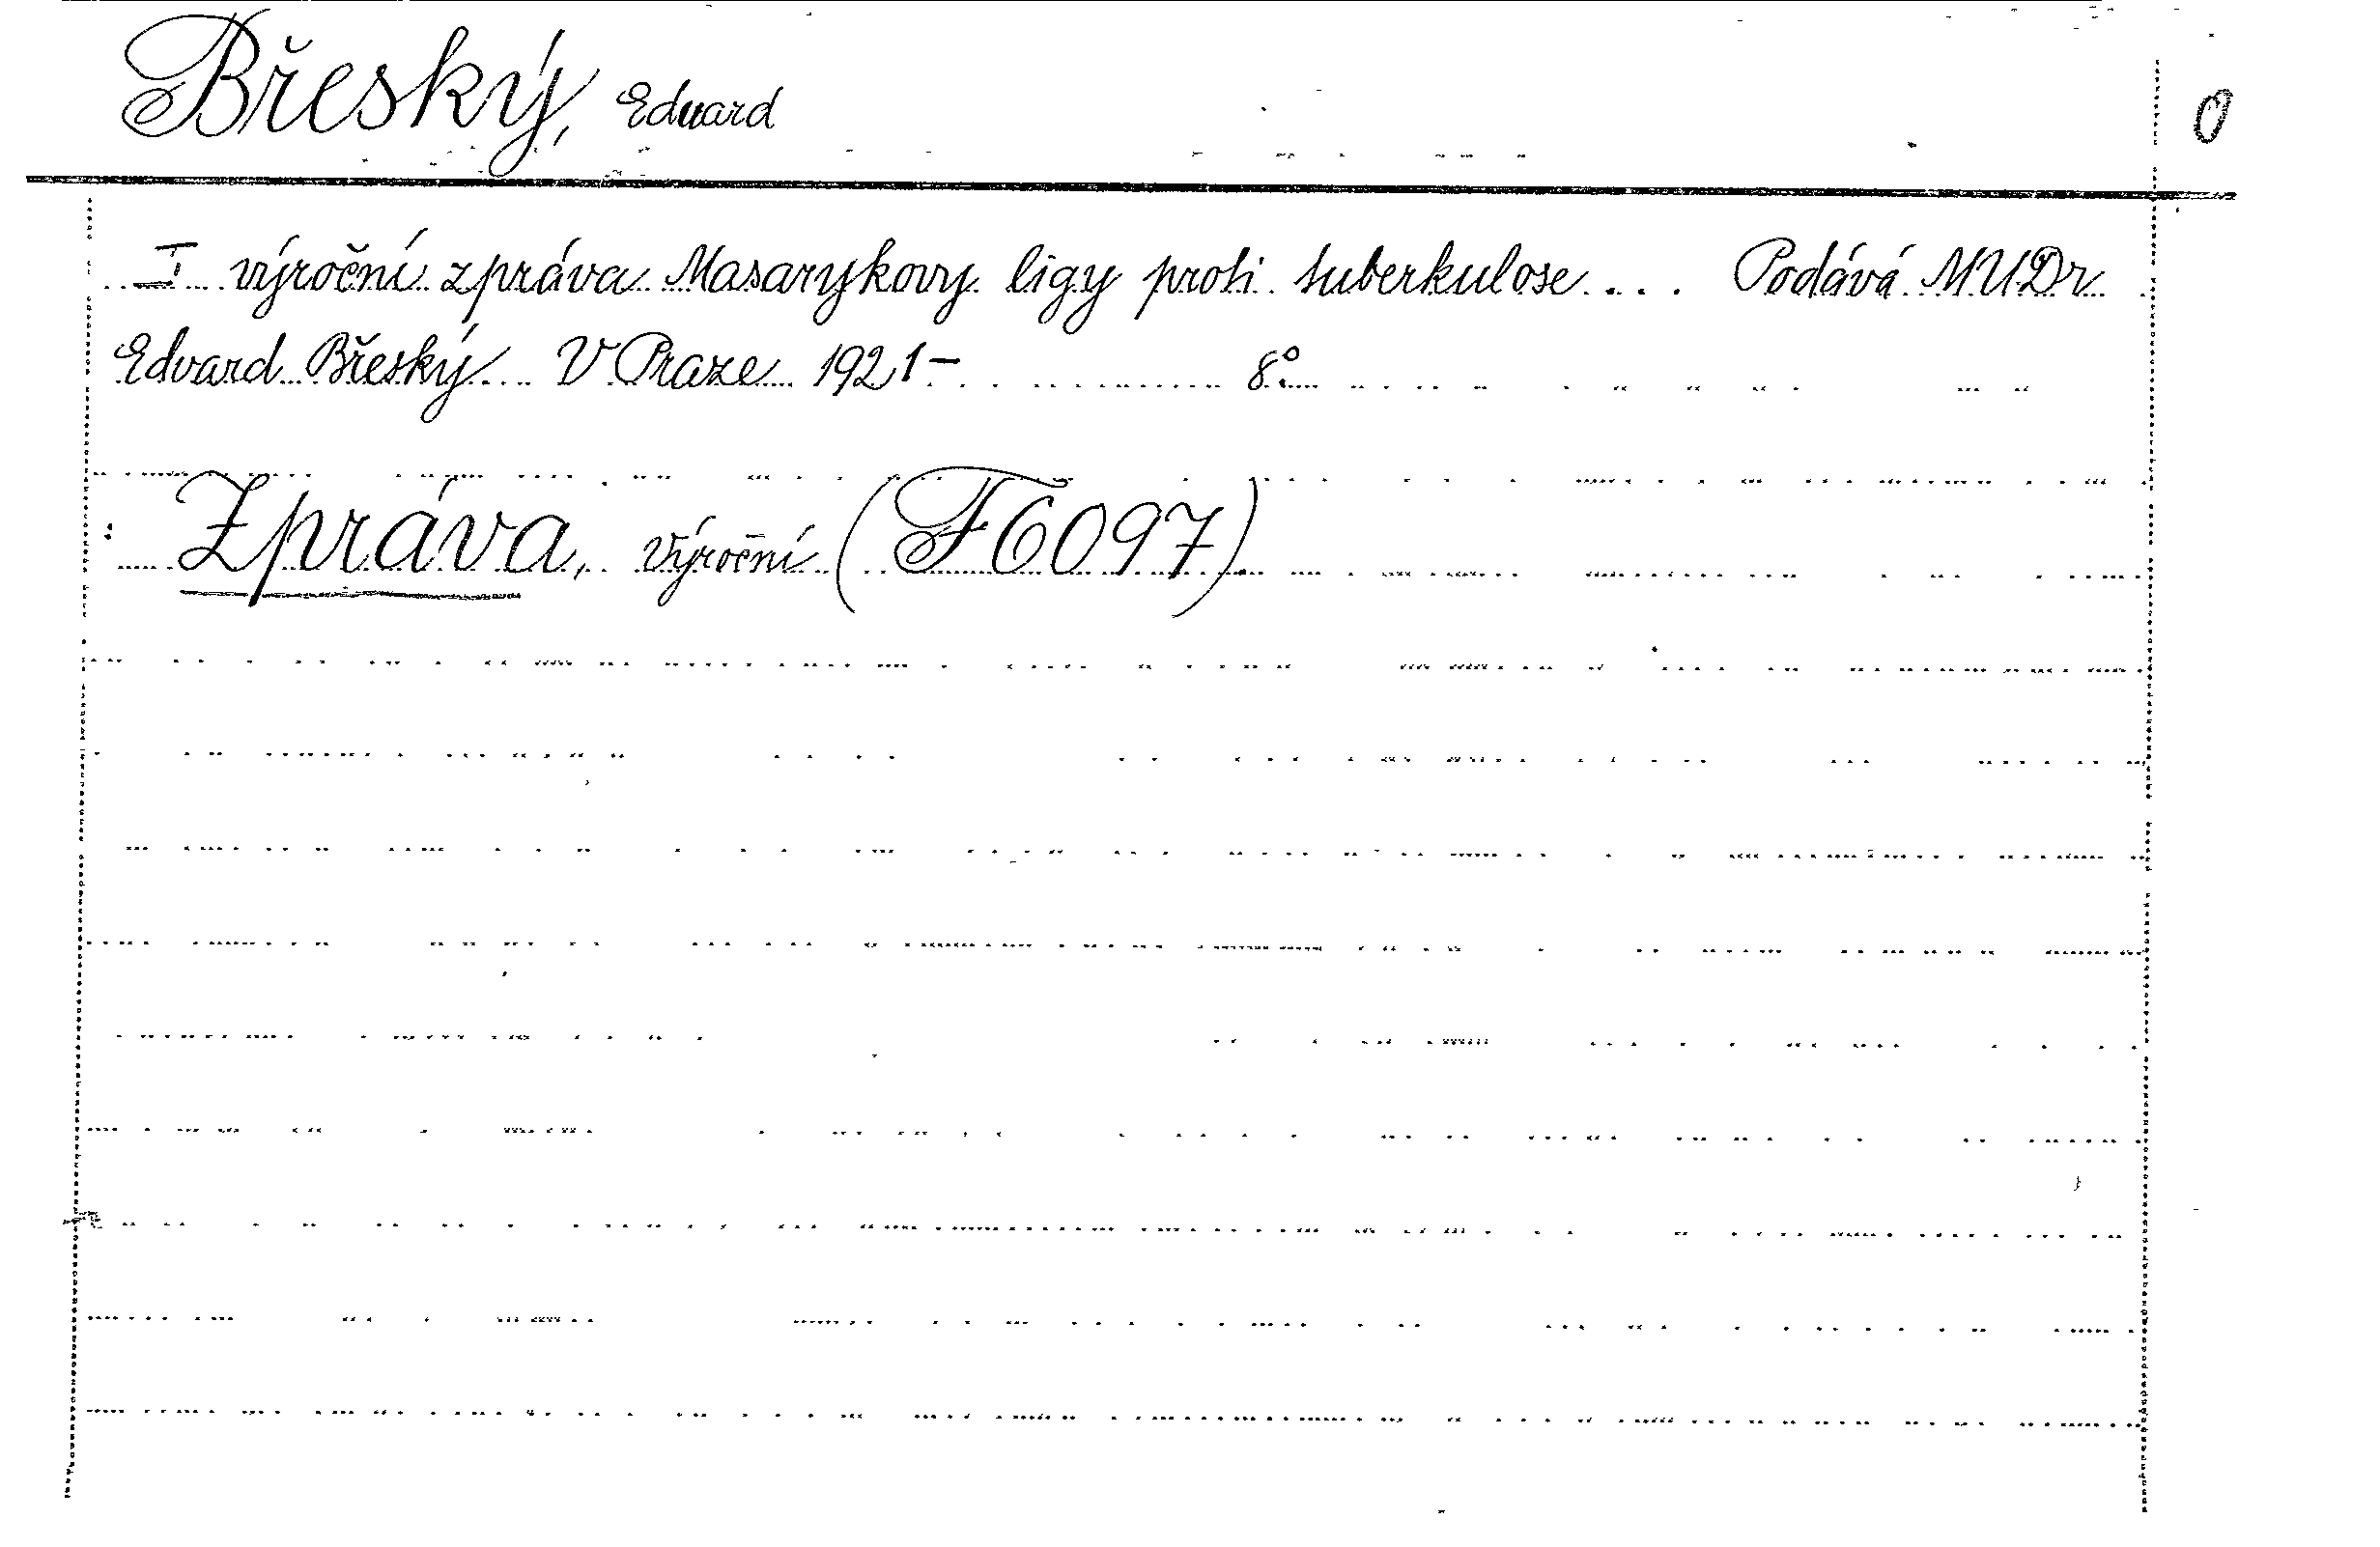 Břeský, Eduard
O
I výroční zpráva Masarykovy ligy proti tuberkulose... Podává MUDr
Edvard Břeský. V Praze 1921- 8°.
Zpráva, výroční (F6097).